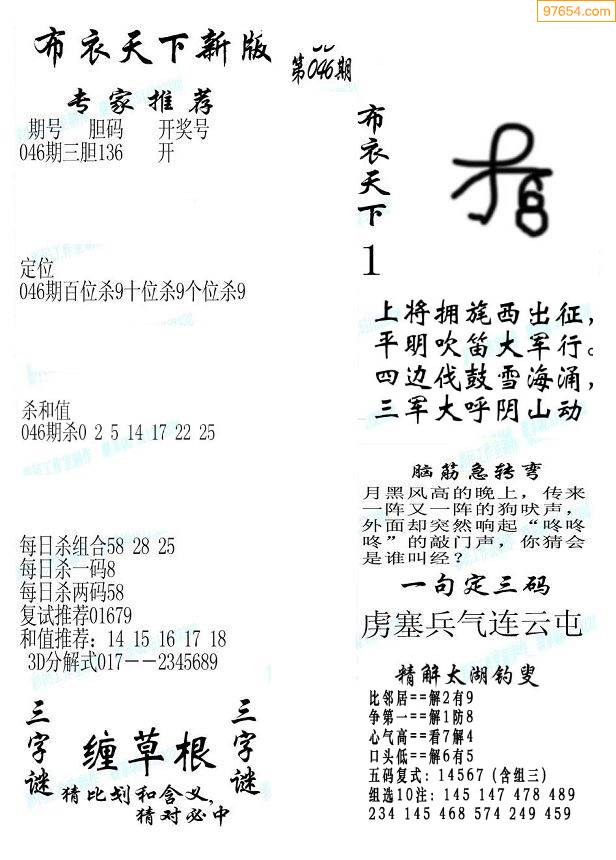 97654.com
布衣天下新版
第046期
专家推荐
期号 胆码 开奖号
046期三胆136 开
定位
046期百位杀9十位杀9个位杀9
杀和值
046期杀0 2 5 14 17 22 25
每日杀组合58 28 25
每日杀一码8
每日杀两码58
复试推荐01679
和值推荐：14 15 16 17 18
3D分解式017--2345689
三字谜
缠草根
三字谜
猜比划和含义,
猜对必中
布衣天下
1
上将拥旄西出征，
平明吹笛大军行。
四边伐鼓雪海涌，
三军大呼阴山动
脑筋急转弯
月黑风高的晚上，传来
一阵又一阵的狗吠声，
外面却突然响起“咚咚
咚”的敲门声，你猜会
是谁叫经？
一句定三码
虏塞兵气连云屯
精解太湖钓叟
比邻居==解2有9
争第一==解1防8
心气高==看7解4
口头低==解6有5
五码复式：14567（含组三）
组选10注：145 147 478 489
234 145 468 574 249 459